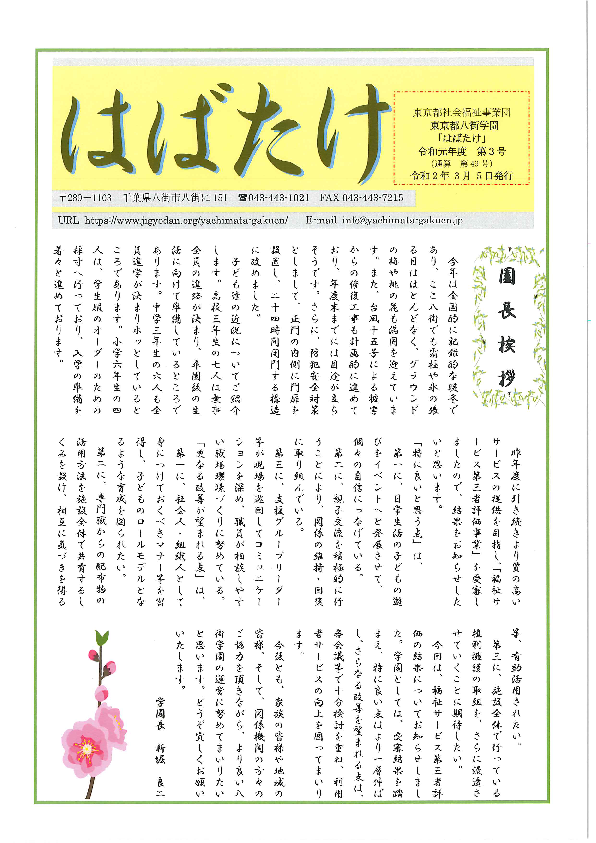 はばたけ
東京都社会福祉事業団
東京都八街学園
「はばたけ」
令和元年度　第3号
(通算　第49号)
令和2年3月5日発行
〒289-1103　千葉県八街市八街に151　☎043-443-1021　FAX 043-443-7215
URL https://www.jigyodan.org/yachimata-gakuen/　E-mail info@yachimata-gakuen.jp
園長挨拶
今年は全国的に記録的な暖冬で
あり、ここ八街でも霜柱や氷の張
る日はほとんどなく、グラウンド
の梅や桃の花も満開を迎えていま
す。また、台風十五号による被害
からの修復工事も計画的に進めて
おり、年度末までには目途が立ち
そうです。さらに、防犯安全対策
としまして、正門の内側に門扉を
設置し、二十四時間閉門する構造
に改めました。
子ども達の近況についてご紹介
します。高校三年生の七人は無事
全員の進路が決まり、卒園後の生
活に向けて準備しているところで
あります。中学三年生の六人も全
員進学が決まりホッとしていると
ころであります。小学六年生の四
人は、学生服のオーダーのための
採寸へ行っており、入学の準備を
着々と進めております。
昨年度に引き続きより質の高い
サービスの提供を目指し「福祉サ
ービス第三者評価事業」を受審し
ましたので、結果をお知らせした
いと思います。
「特に良いと思う点」は、
第一に、日常生活の子どもの遊
びをイベントへと発展させて、
個々の自信につなげている。
第二に、親子交流を積極的に行
うことにより、関係の維持・回復
に取り組んでいる。
第三に、支援グループリーダー
等が現場を巡回してコミュニケー
ションを深め、職員が相談しやす
い職場環境づくりに努めている。
「更なる改善が望まれる点」は、
第一に、社会人・組織人として
身につけておくべきマナー等を習
得し、子どものロールモデルとな
るような育成を図られたい。
第二に、専門職からの配布物の
活用方法を施設全体で共有するし
くみを設け、相互に気づきを得る
等、有効活用されたい。
第三に、施設全体で行っている
権利擁護の取組を、さらに浸透さ
せていくことに期待したい。
今回は、福祉サービス第三者評
価の結果についてお知らせしまし
た。学園としては、受審結果を踏
まえ、特に良い点はより一層伸ば
し、さらなる改善を望まれる点は、
各会議等で十分検討を重ね、利用
者サービスの向上を図ってまいり
ます。
今後とも、家族の皆様や地域の
皆様、そして、関係機関の方々の
ご協力を頂きながら、より良い八
街学園の運営に努めてまいりたい
と思います。どうぞ宜しくお願い
いたします。
学園長　新堀　良二